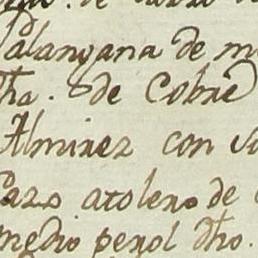 de
Palangana de
Dha. de Cobre
Almirez con
Cazo atolero de
medio perol dho.